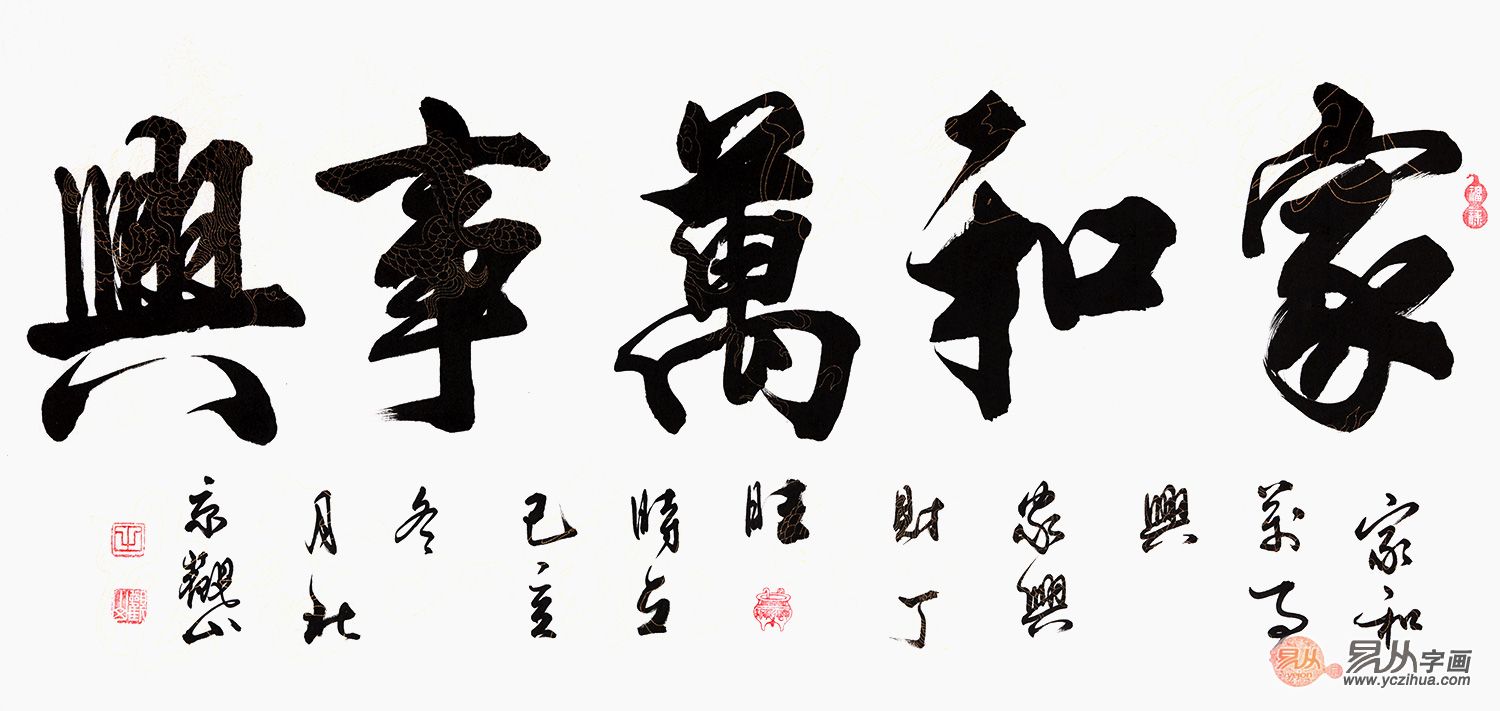 家和萬事興
家和
萬事
興
家興
財丁
旺
時在
己亥
冬
月於
京觀山
福祿
易从
易从字画
www.yczihua.com